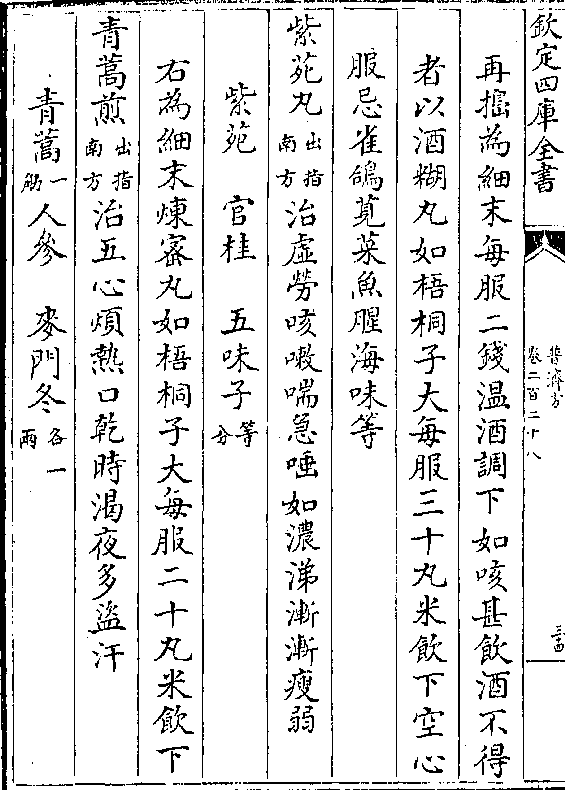 欽定四庫全書
普濟方
卷二百二十八
三十四
再搗為細末每服二錢温酒調下如咳甚飲酒不得
者以酒糊丸如梧桐子大每服三十丸米飲下空心
服忌雀鴿莧菜魚腥海味等
紫苑丸出指南方治虛勞咳嗽喘急唾如濃涕漸漸瘦弱
紫苑 官桂 五味子等分
右為細末煉宻丸如梧桐子大每服二十丸米飲下
青蒿煎出指南方治五心煩熱口乾時渇夜多盜汗
青蒿一觔人參 麥門冬各一兩